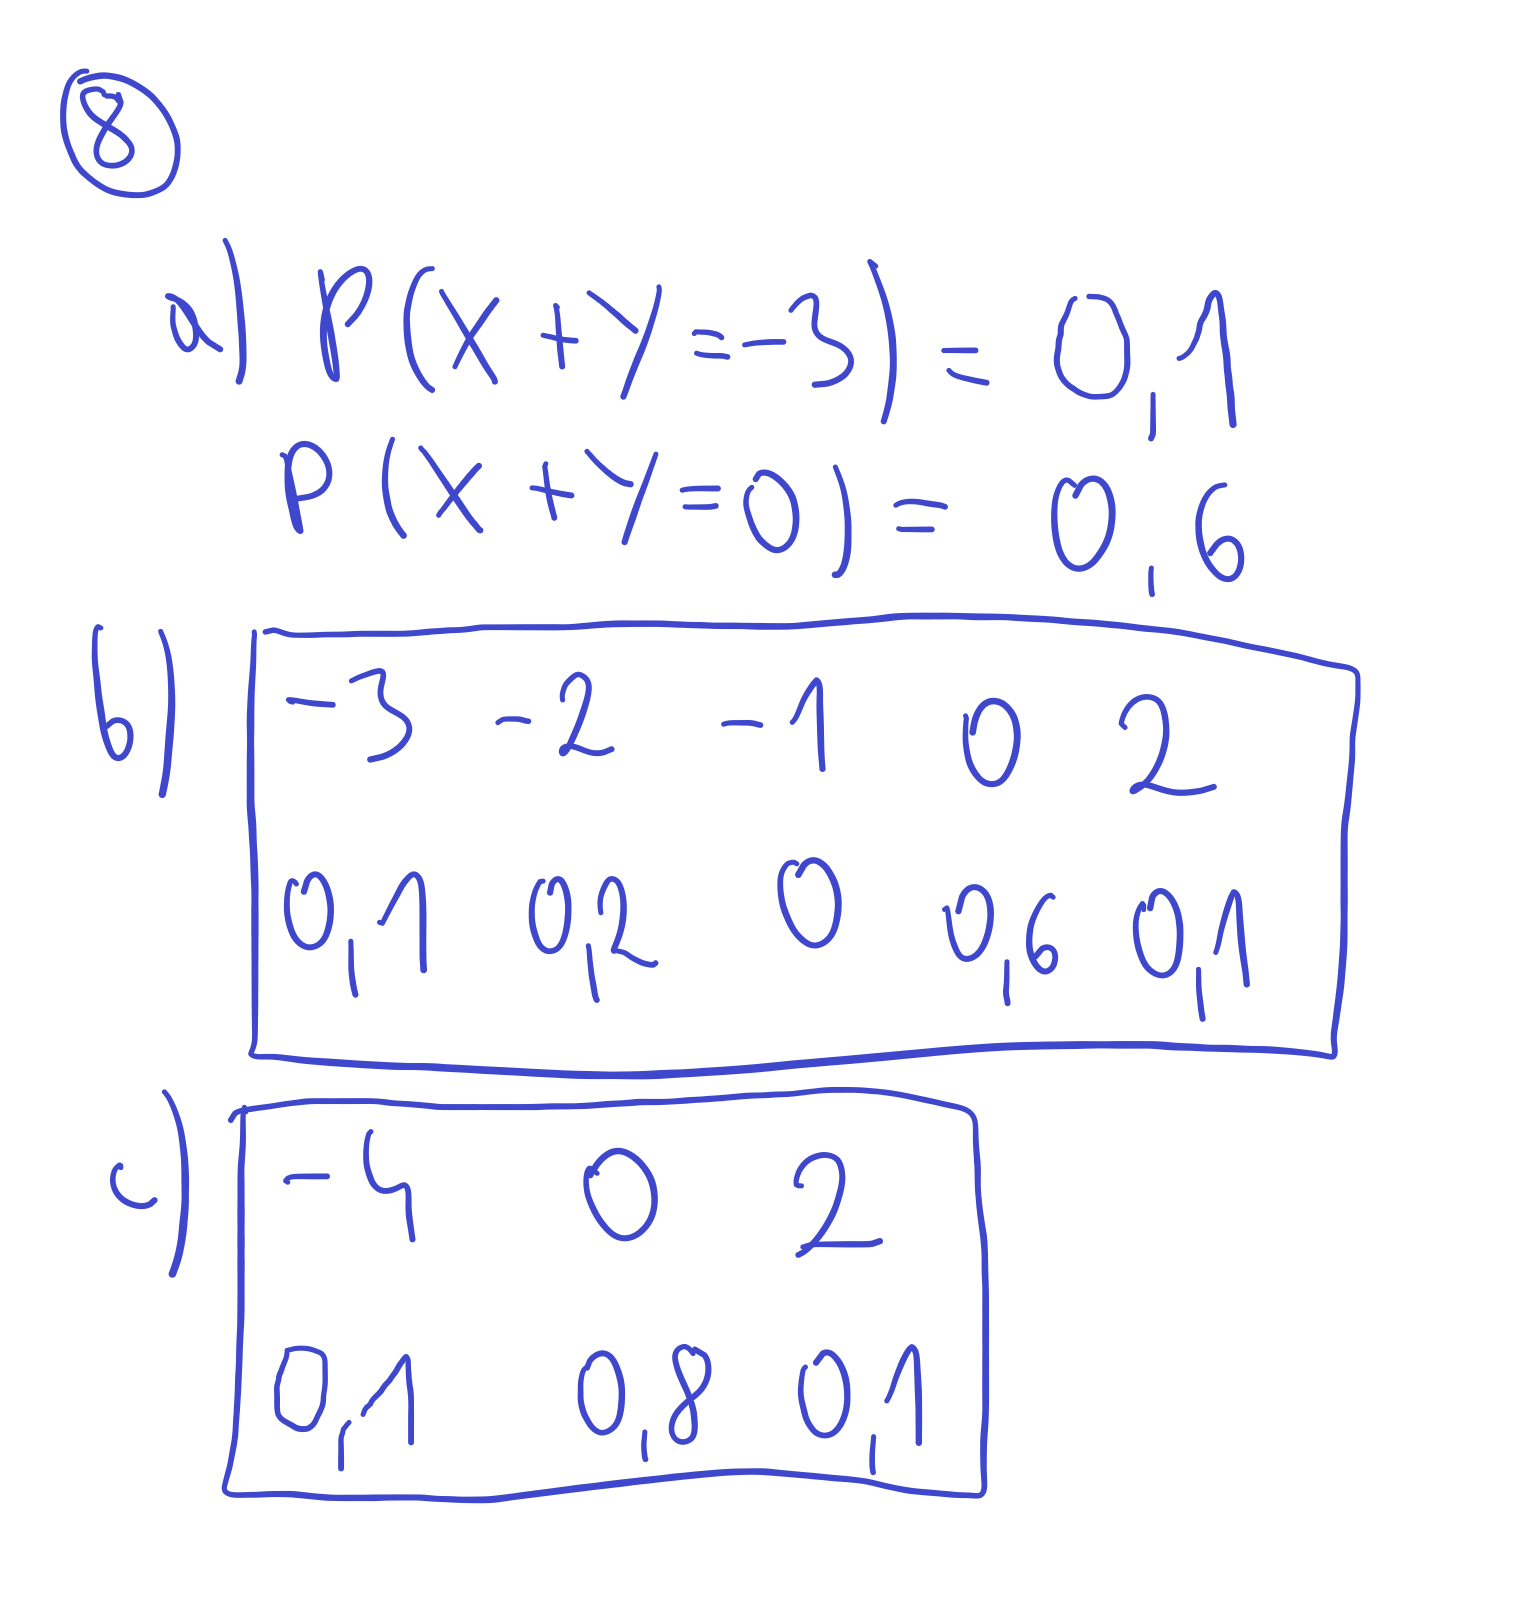 8
a) P(X+Y=-3) = 0,1
P(X+Y=0) = 0,6
b) -3 -2 -1 0 2
0,1 0,2 0 0,6 0,1
c) -4 0 2
0,1 0,8 0,1